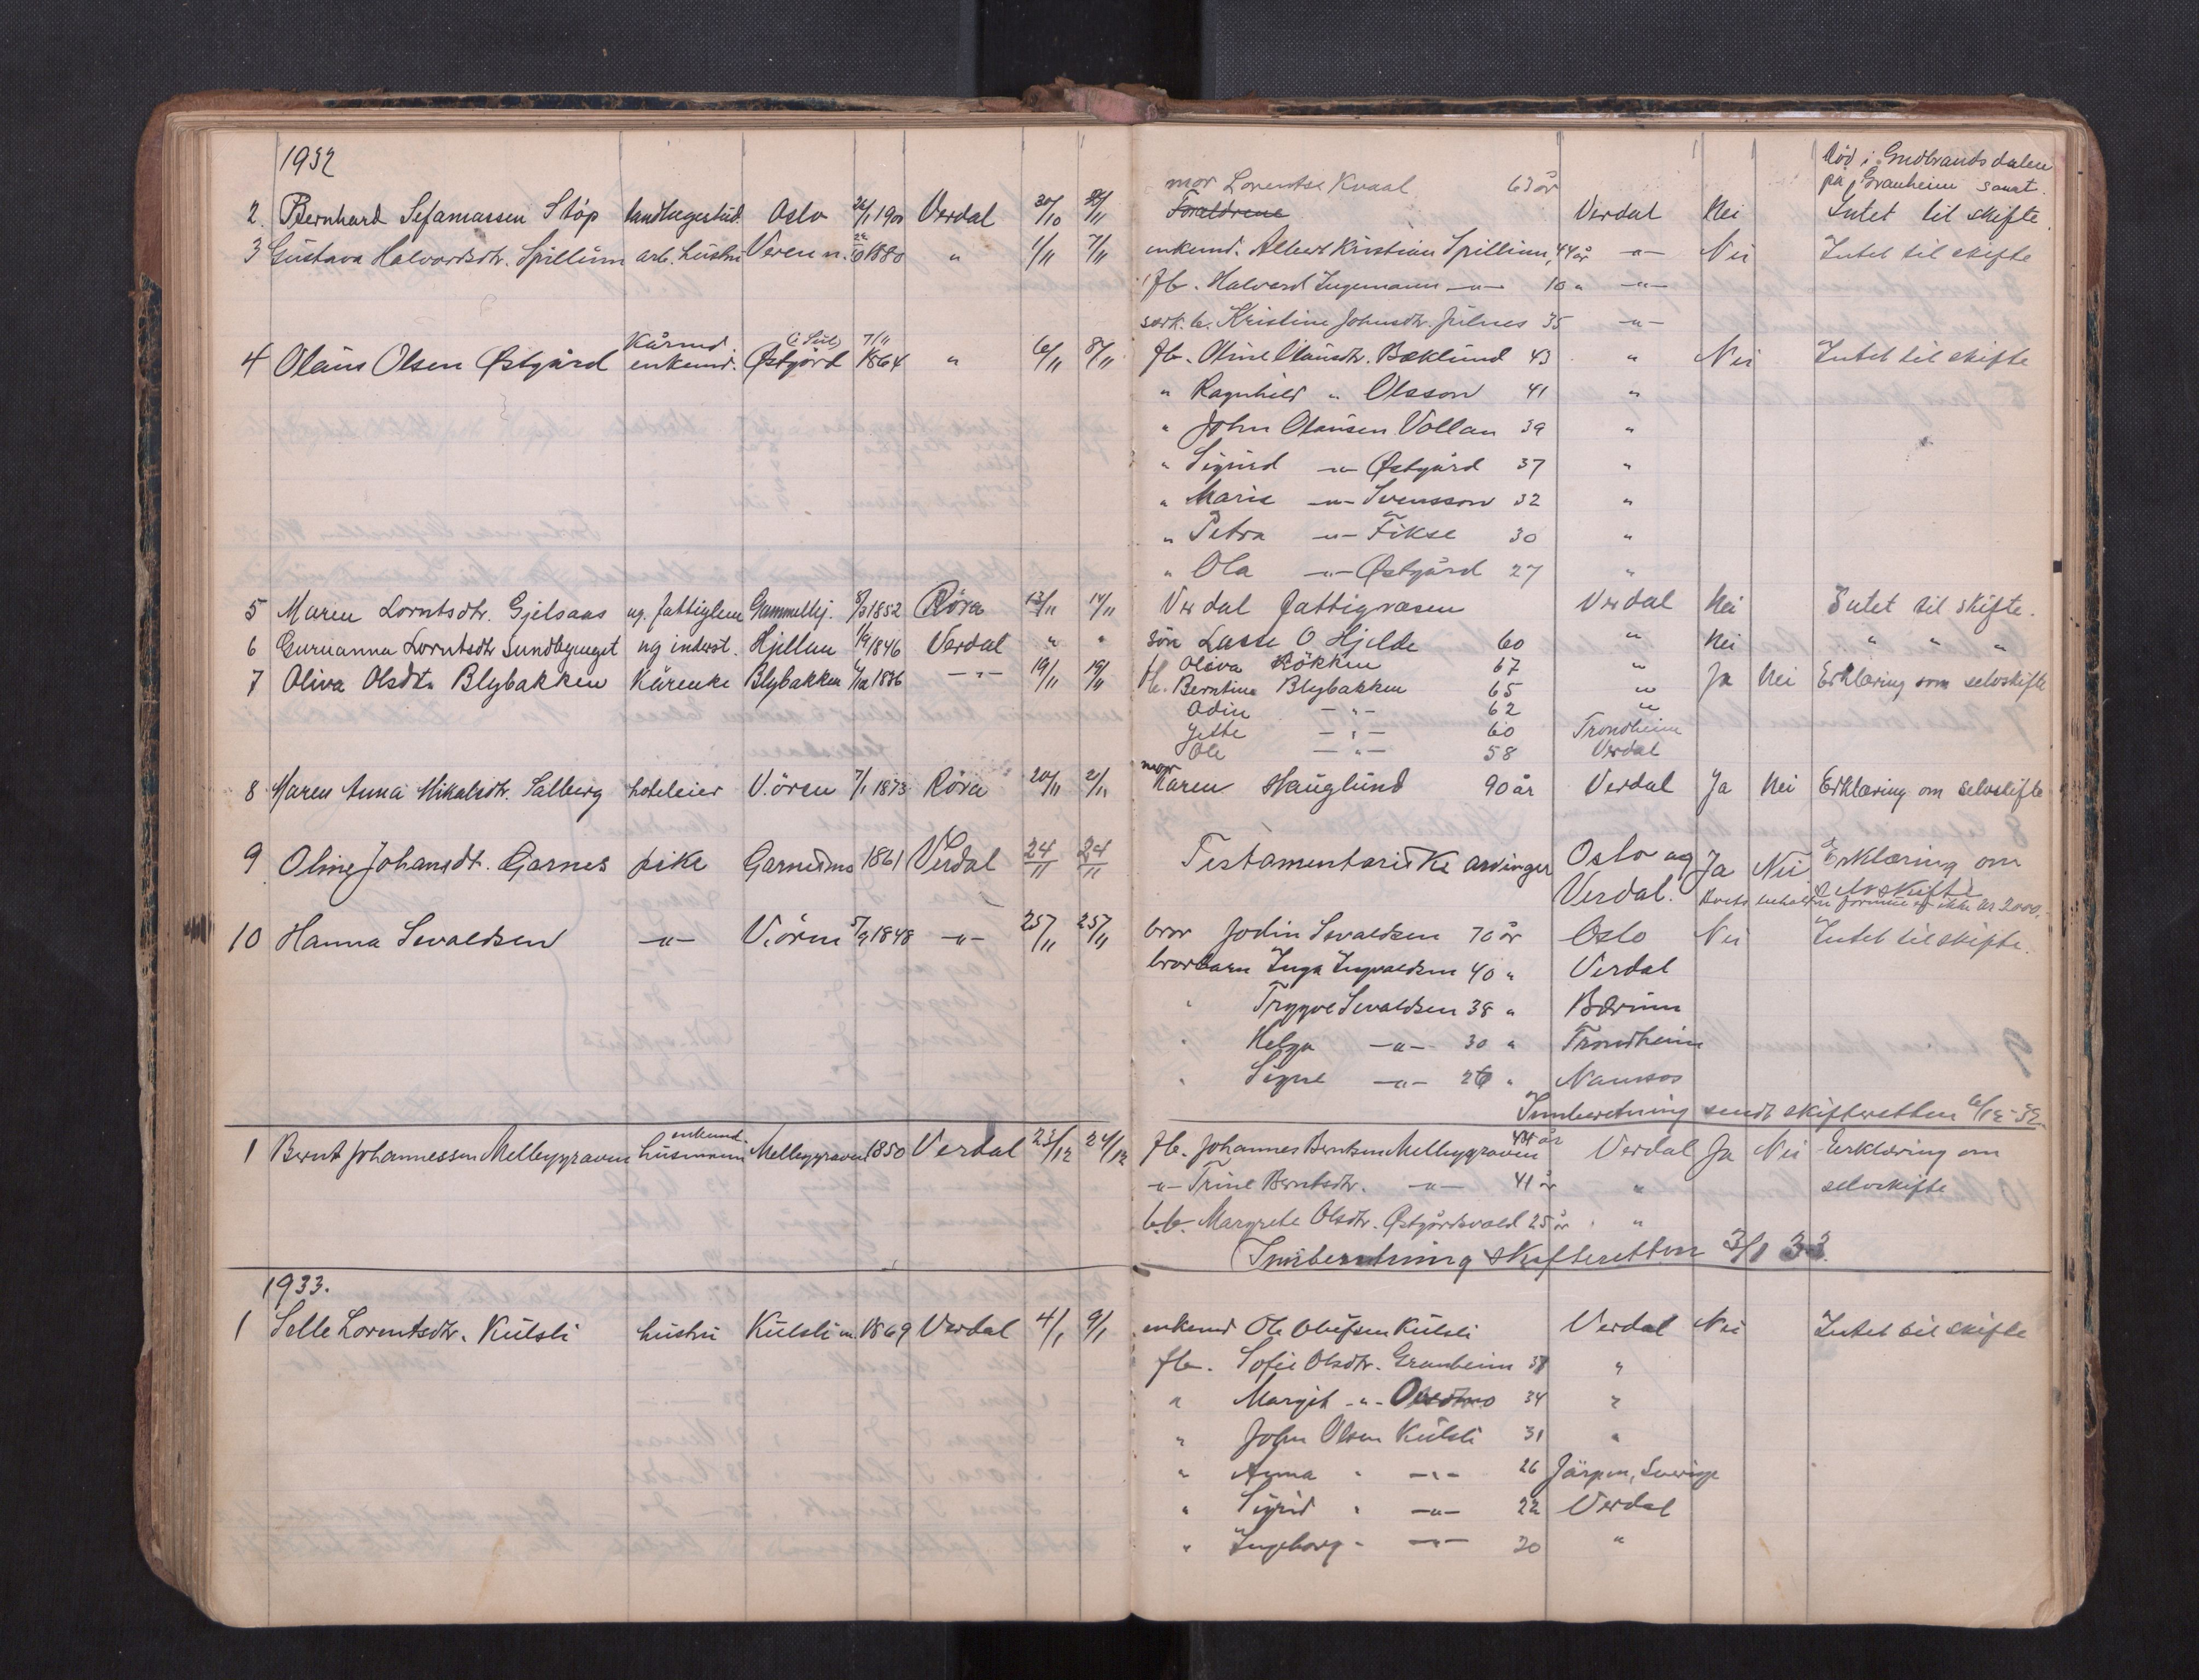 1932
død i Gudbrandsdalen
på Granheim sanat.
mor Lorentse Kvaal 63 år
2 Bernhard Sefaniassen Stöp landbugsstud. Oslo 1901 Verdal 30/10 Foreldrene Verdal Nei Intet til skifte.
3 Gustava Halvordsdtr. Spillum arb. hustru Veren n. 1880 " 1/11 7/11 enkemd. Albert Kristian Spillum, 44 år -"- Nei Intet til skifte
fb. Halvard Ingemann -"- 10 " -"-
særk. b. Kristine Johnsdtr. Julnes 35 -"-
Kårmd. (i Sul) 7/11
4 Olaus Olsen Østgård enkemd. Østgård 1864 " 6/11 8/11 fb. Oline Olausdtr. Bæklund 43 " Nei Intet til skifte
" Ragnhild " Olsson 41 "
" John Olausen Vollan 39 "
" Sigurd -"- Østgård 37 "
" Marie -"- Svensson 32 "
" Petra -"- Fikse 30 "
" Ola -"- Østgård 27 "
5 Maren Lorntsdtr. Gjelsaas ug. fattiglem Gammellkj. 8/3 1852 Röra 13/11 14/11 Verdal fattigvæsen Verdal Nei Intet til skifte.
6 Gurianna Lorntsdtr Sundbyeuget ug inderst. Hjellan 1/9 1846 Verdal " " sön Lasse O. Hjelde 60 " Nei " " "
7 Oliva Olsdtr. Blybakken Kårenke Blybakken 1836 -"- 19/11 19/11 fb. Oliva Rökken 67 " Ja Nei Erklæring som selvskifte
Berntine Blybakken 65 "
Odin -"- 62 "
Jette -"- 60 Trondheim
Ole -"- 58 Verdal
8 Maren Anna Mikalsdtr. Salberg hoteleier V.ören 7/1 1873 Röra 20/11 21/11 mor Karen Hauglund 90 år Verdal Ja Nei Erklæring om selvskifte
9 Oline Johansdt. Garnes pike Garnesmo 1861 Verdal 24/11 24/11 Testamentariske arvinger Oslo og Ja Nei Erklæring om
Verdal. selvskifte
ikke er 2000.-
10 Hanna Sevaldsen -"- V.ören 5/9 1848 -"- 25/11 25/11 bror Jodin Sevaldsen 70 år Oslo Nei Intet til skifte.
brorbarn Inga Ingvaldsen 40 " Verdal
" Trygve Sevaldsen 38 " Bærum
" Helga -"- 30 " Trondheim
" Signe -"- 26 " Namsos
Innberetning sendt skifteretten 6/12-32.
1 Bernt Johannessen Mellbygraven enkemd. husmann Mellbygraven 1850 Verdal 23/12 24/12 fb. Johannes Berntsen Mellbygraven år Verdal Ja Nei Erklæring om
-"- Trine Berntsdtr. -"- 41 år " selvskifte
b.b. Margrete Olsdtr. Østgårdsvald 25 år "
Innberetning skifteretten 3/1 33.
1933.
1 Selle Lorentsdtr. Kulsli hustru Kulsli n. 1869 Verdal 4/1 9/1 enkemd Ole Olufsen Kulsli Verdal Nei Intet til skifte
fb. Sofie Olsdtr. Granheim 38 "
" Margit -"- 34 "
" John Olsen Kulsli 31 "
" Anna " -"- 26 Järpen, Sverige
" Sigrid " -"- 22 Verdal
" Ingeborg " -"- 20 "